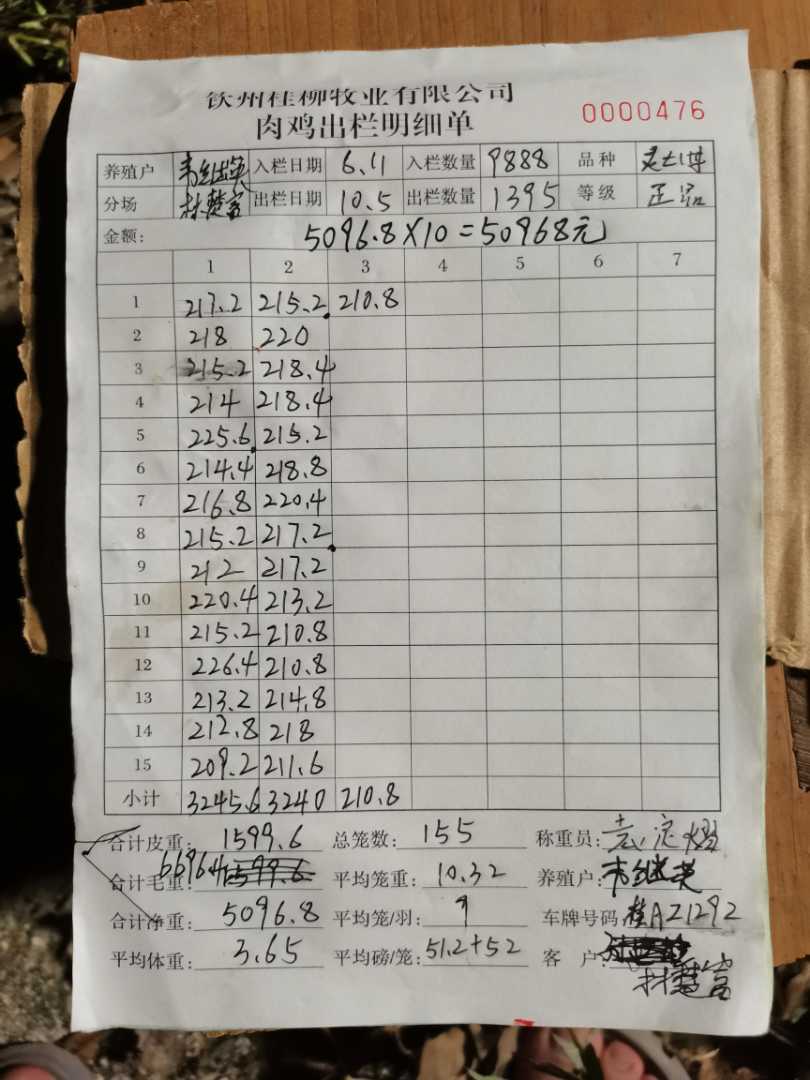 钦州桂柳牧业有限公司
肉鸡出栏明细单 0000476
养殖户 韦继英 入栏日期 6.11 入栏数量 9888 品种
分场 林楚富 出栏日期 10.5 出栏数量 1395 等级 正品
金额: 5096.8×10=50968元
1 2 3 4 5 6 7
1 217.2 215.2 210.8
2 218 220
3 215.2 218.4
4 214 218.4
5 225.6 215.2
6 214.4 218.8
7 216.8 220.4
8 215.2 217.2
9 212 217.2
10 220.4 213.2
11 215.2 210.8
12 226.4 210.8
13 213.2 214.8
14 212.8 218
15 209.2 211.6
小计 3245.6 3240 210.8
合计皮重: 1599.6 总笼数: 155 称重员:
合计毛重: 6696.4 平均笼重: 10.32 养殖户: 韦继英
合计净重: 5096.8 平均笼/羽: 9 车牌号码: 桂AZ1292
平均体重: 3.65 平均磅/笼: 51.2+52 客户:
林楚富